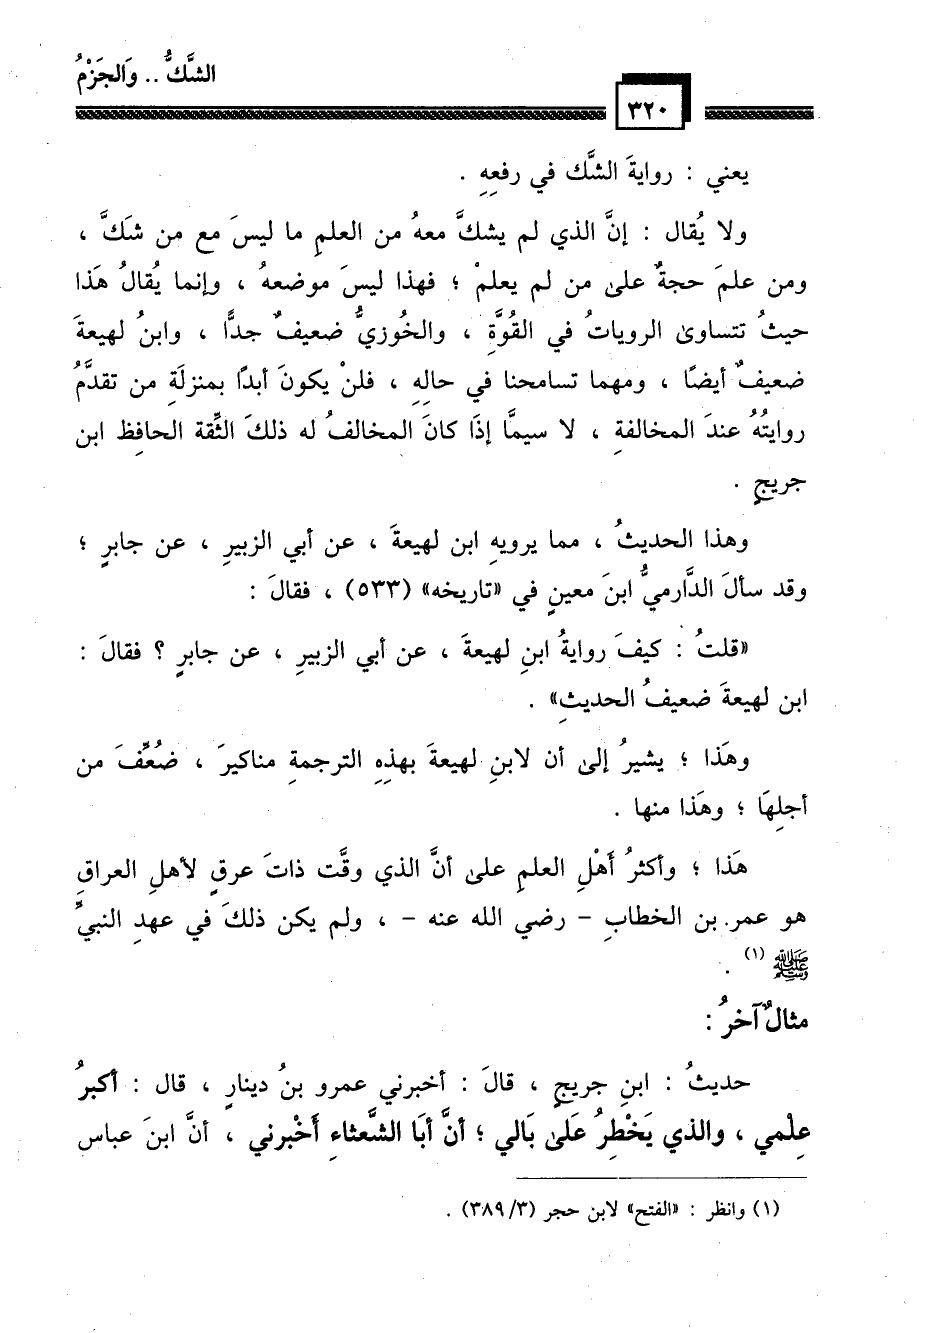 الشَّكُّ .. وَالجَزْمُ
٣٢٠
يعني : روايةَ الشَّك في رفعِهِ .
ولا يُقال : إنَّ الذي لم يشكَّ معهُ من العلمِ ما ليسَ مع من شكَّ ،
ومن علمَ حجةٌ علىٰ من لم يعلمْ ؛ فهذا ليسَ موضعهُ ، وإنما يُقالُ هَذا
حيثُ تتساوىٰ الروياتُ في القُوَّةِ ، والخُوزيُّ ضعيفٌ جدًّا ، وابنُ لهيعةَ
ضعيفٌ أيضًا ، ومهما تسامحنا في حالِهِ ، فلنْ يكونَ أبدًا بمنزلَةِ من تقدَّمُ
روايتُهُ عندَ المخالفةِ ، لا سيمَّا إذَا كانَ المخالفُ له ذلكَ الثِّقة الحافِظ ابن
جريجٍ .
وهذا الحديثُ ، مما يرويهِ ابن لهيعةَ ، عن أبي الزبيرِ ، عن جابرٍ ؛
وقد سألَ الدَّارميُّ ابنَ معينٍ في «تاريخه» (٥٣٣) ، فقالَ :
«قلتُ : كيفَ روايةُ ابنِ لهيعةَ ، عن أبي الزبيرِ ، عن جابرٍ ؟ فقالَ :
ابن لهيعةَ ضعيفُ الحديثِ» .
وهَذا ؛ يشيرُ إلىٰ أن لابنِ لهيعةَ بهذِهِ الترجمةِ مناكيرَ ، ضُعِّفَ من
أجلِهَا ؛ وهَذا منها .
هَذا ؛ وأكثرُ أَهْلِ العلمِ علىٰ أنَّ الذي وقَّت ذاتَ عرقٍ لأهلِ العراقِ
هو عمر بن الخطابِ - رضي الله عنه - ، ولم يكن ذلكَ في عهدِ النبيِّ
ﷺ (١) .
مثالٌ آخرُ :
حديثُ : ابنِ جريجٍ ، قالَ : أخبرني عمرو بنُ دينارٍ ، قال : أكبرُ
عِلْمي ، والذي يَخْطِرُ عَلىٰ بَالي ؛ أنَّ أبَا الشَّعثاءِ أَخْبرني ، أنَّ ابنَ عباس
(١) وانظر : «الفتح» لابن حجر (٣/٣٨٩) .